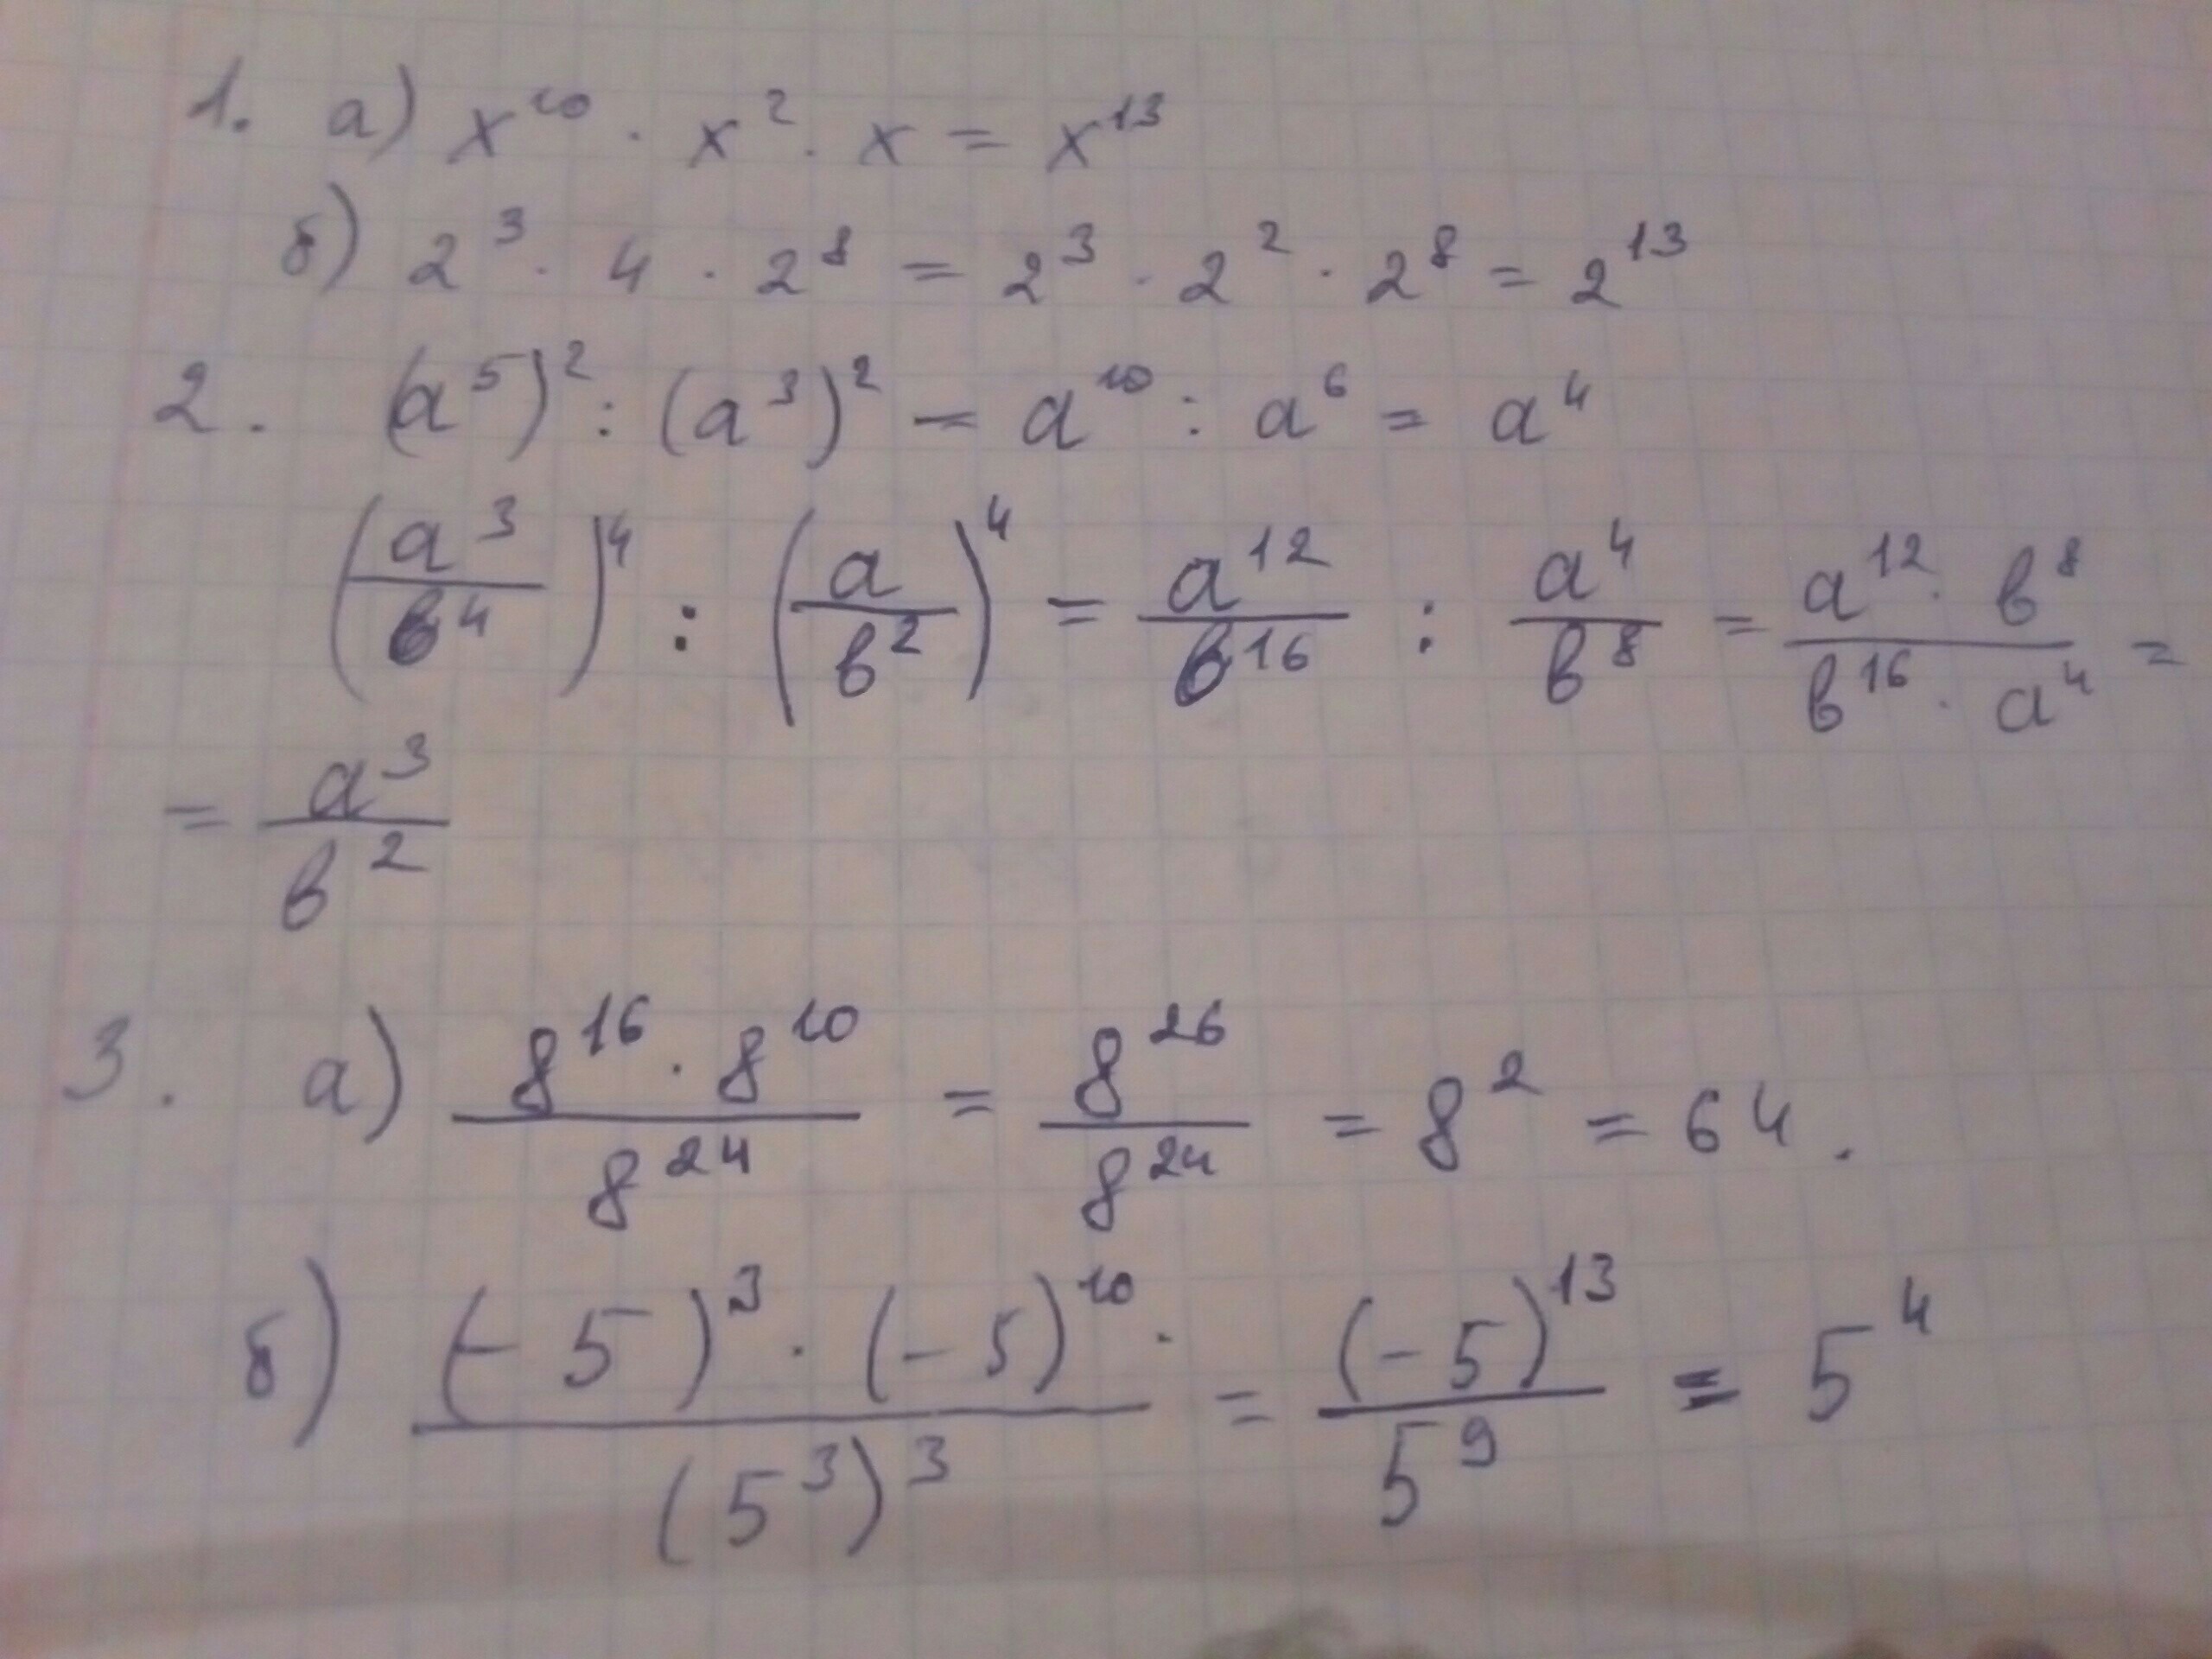 1. а) x¹⁰ · x² · x = x¹³
б) 2³ · 4 · 2⁸ = 2³ · 2² · 2⁸ = 2¹³
2. (a⁵)² : (a³)² = a¹⁰ : a⁶ = a⁴
(a³/в⁴)⁴ : (a/в²)⁴ = a¹²/в¹⁶ : a⁴/в⁸ = a¹² · в⁸/в¹⁶ · a⁴ =
= a³/в²
3. а) 8¹⁶ · 8¹⁰/8²⁴ = 8²⁶/8²⁴ = 8² = 64.
б) (-5)³ · (-5)¹⁰ ·/(5³)³ = (-5)¹³/5⁹ = 5⁴